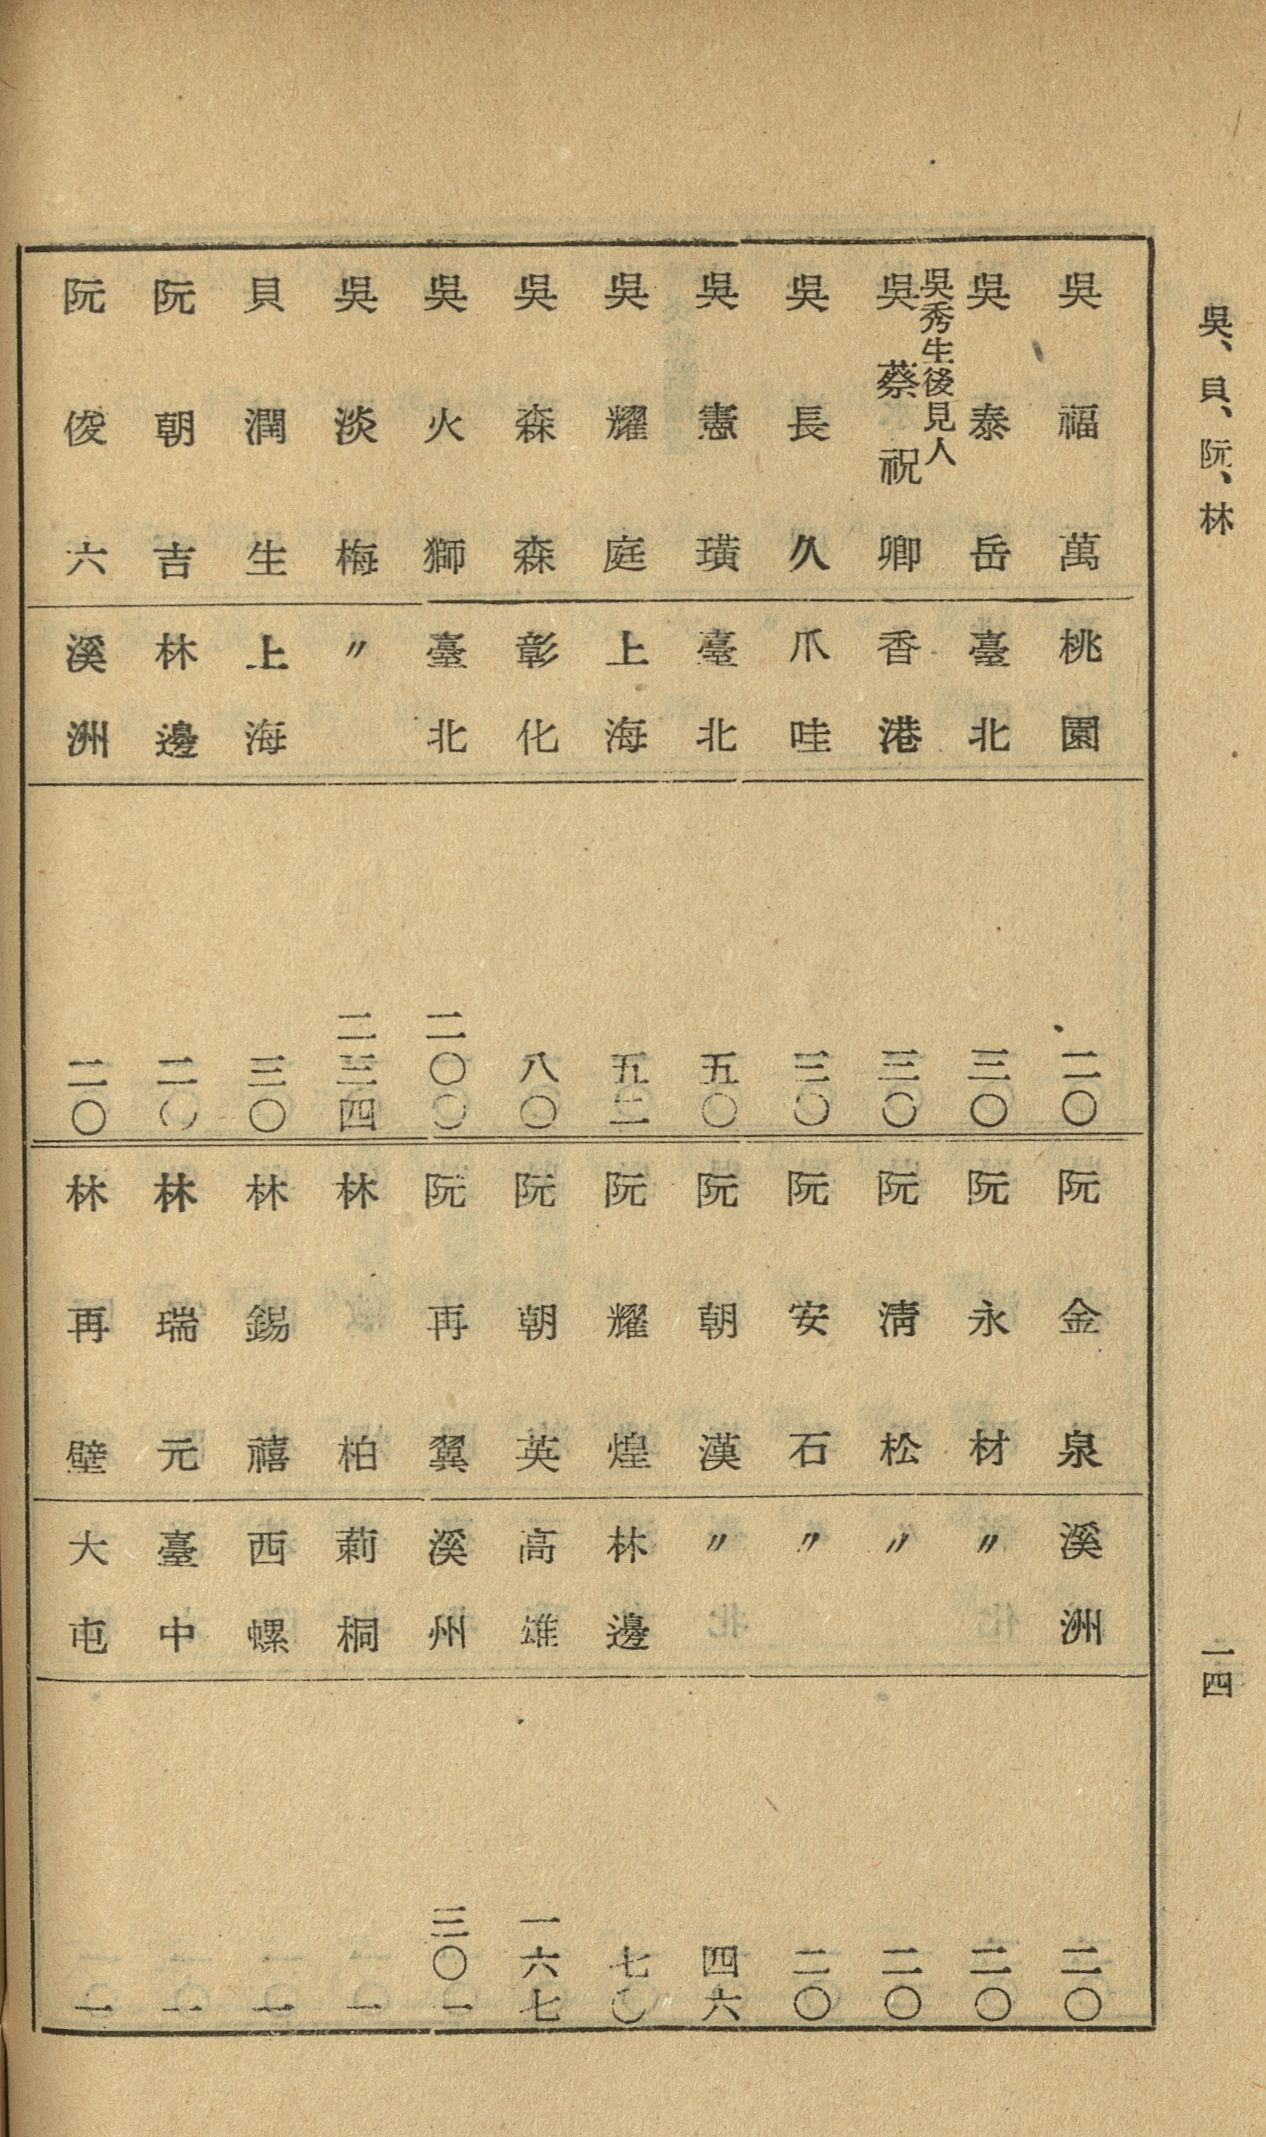 吳、貝、阮、林
一四
吳福萬 桃園 二〇
吳泰岳 臺北 三〇
吳秀生後見人
吳蔡祝卿 香港 三〇
吳長久 爪哇 三〇
吳憲璜 臺北 五〇
吳耀庭 上海 五二
吳森森 彰化 八〇
吳火獅 臺北 二〇〇
吳淡梅 〃 二三四
貝潤生 上海 三〇
阮朝吉 林邊 二〇
阮俊六 溪洲 二〇
阮金泉 溪洲 二〇
阮永材 〃 二〇
阮淸松 〃 二〇
阮安石 〃 二〇
阮朝漢 〃 四六
阮耀煌 林邊 七〇
阮朝英 高雄 一六七
阮再翼 溪州 三〇一
林柏 莿桐 一
林錫禧 西螺 一
林瑞元 臺中 一
林再壁 大屯 一